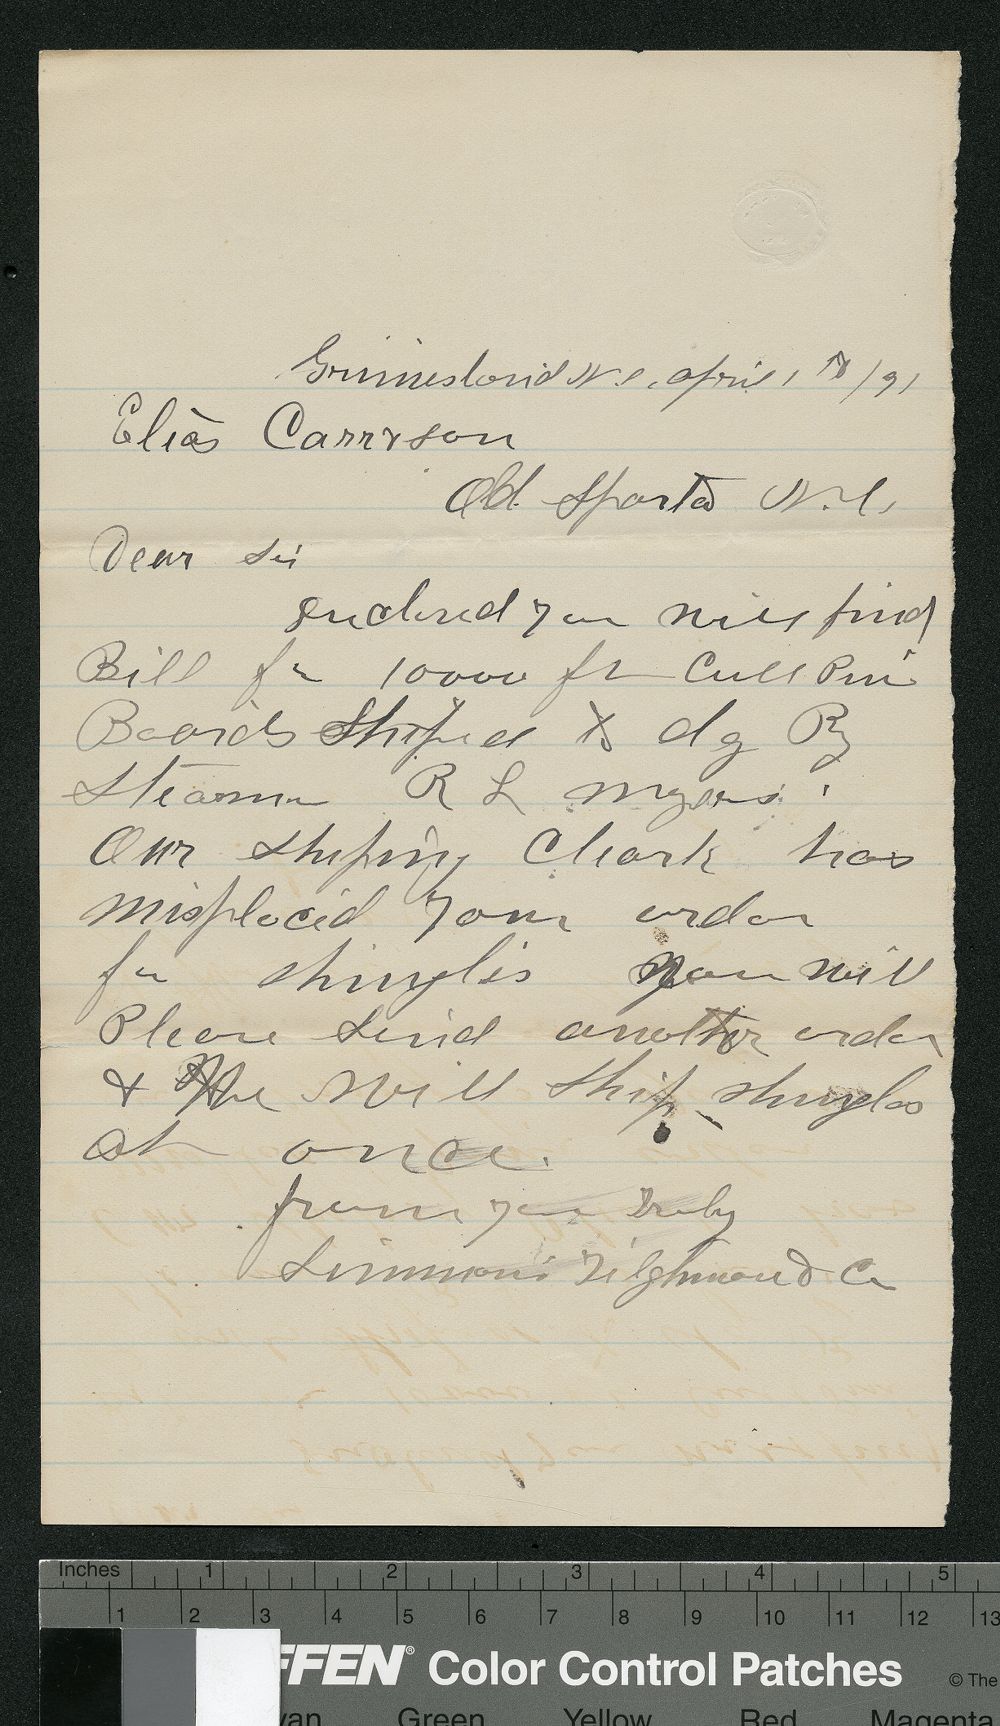 Grimesland N.C. april 1st /91
Elias Carrrson
Old Sparta N.C.
Dear Sir
Enclosed you will find
Bill for 10000 ft Cull Pine
Boards Shiped to dg By
Steamer R L Myers.
Our Shiping Cleark has
misplaced your order
for shingles you will
Please Send another order
& We Will Ship shingles
at once.
from your Truly
Simmons Tilghman & Co
Inches 1 2 3 4 5
1 2 3 4 5 6 7 8 9 10 11 12 13
FFEN® Color Control Patches © The
yan Green Yellow Red Magenta